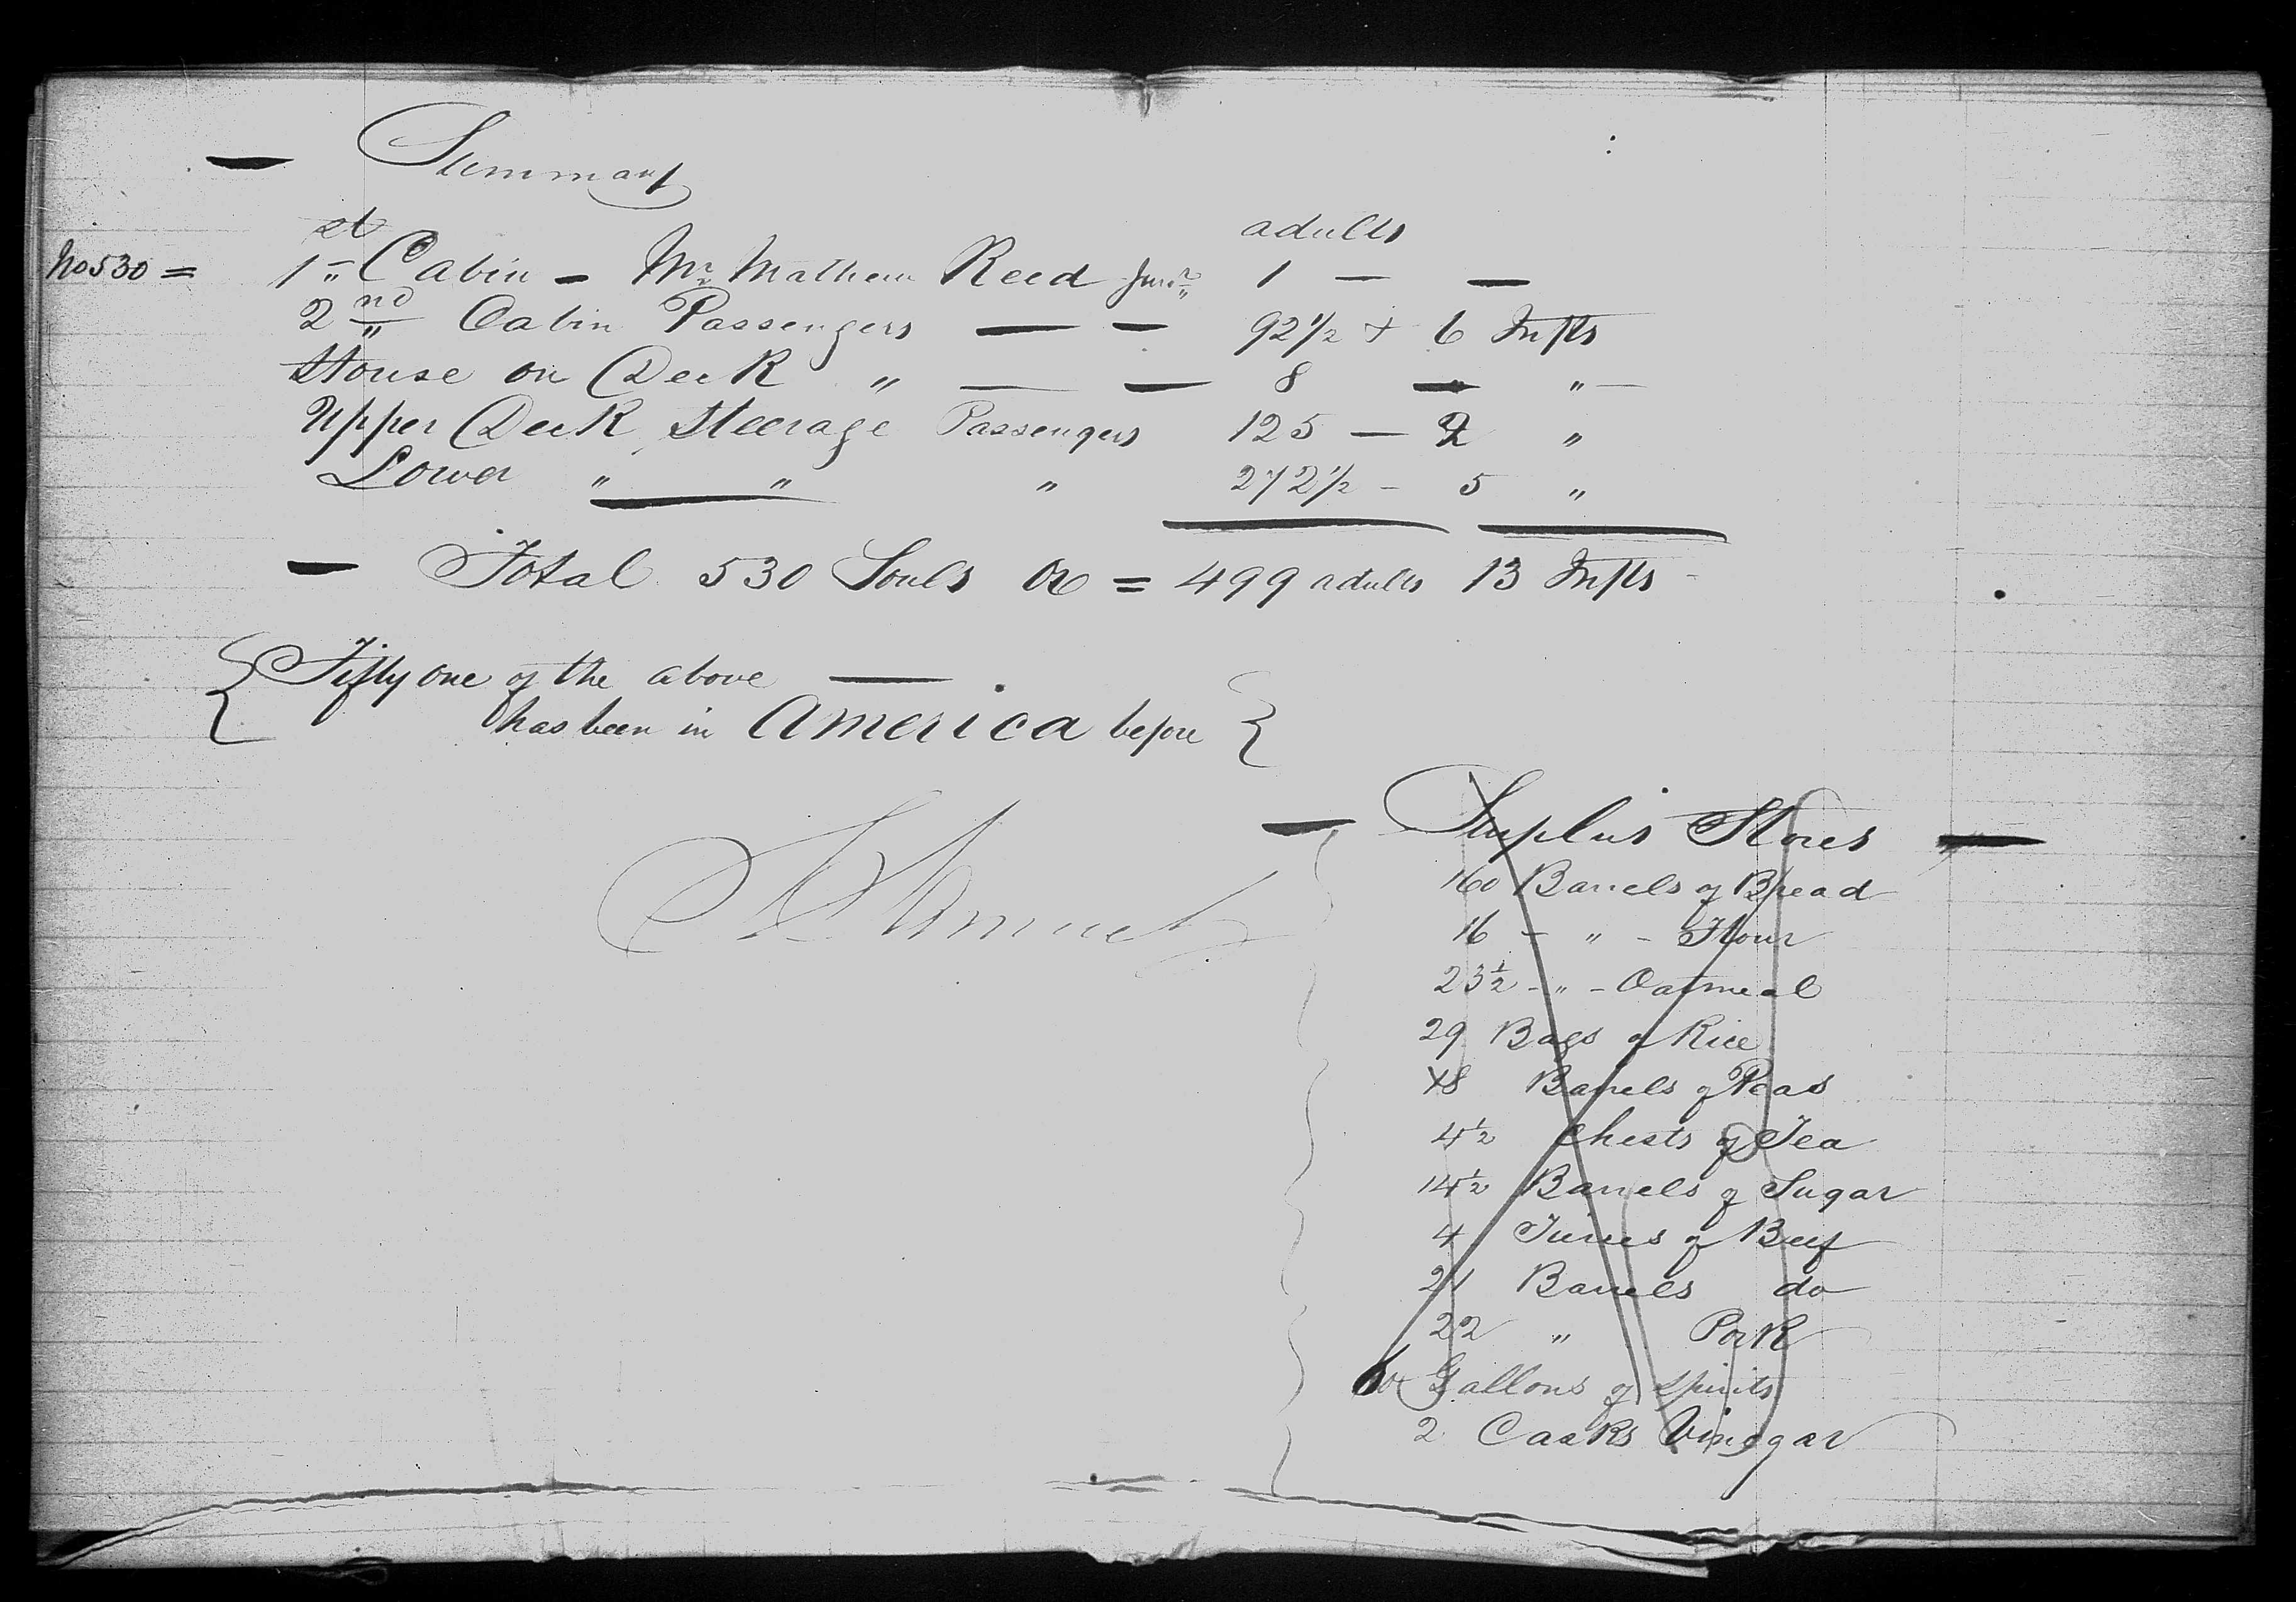 Summary
adults
No 530 = 1st Cabin - Mr Mathew Reed Junr 1 — —
2nd Cabin Passengers — — 92 1/2 + 6 Infts
House on Deck " — — 8 — " —
Upper Deck Steerage Passengers 125 — 2 "
Lower " " " 272 1/2 - 5 "
— Total 530 Souls or = 499 adults 13 Infts -
{ Fifty one of the above —
has been in America before }
— Surplus Stores —
160 Barrels of Bread
16 - " - Flour
23 1/2 - " - Oatmeal
29 Bags of Rice
18 Barrels of Peas
4 1/2 Chests of Tea
14 1/2 Barrels of Sugar
4 Tierces of Beef
21 Barrels do
22 " Pork
Gallons of Spirits
2 Casks Vinegar